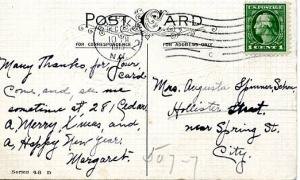 POST CARD
FOR CORRESPONDENCE
FOR ADDRESS ONLY
U.S. POSTAGE
1 CENT 1
Many Thanks, for Your
card
Come, and see me
sometime at 281 Cedar.
A Merry X'mas, and
A Happy New Year.
Margaret.
Series 48 D
Mrs. Augusta
Hollister Street,
near Spring St.
City.
507-7